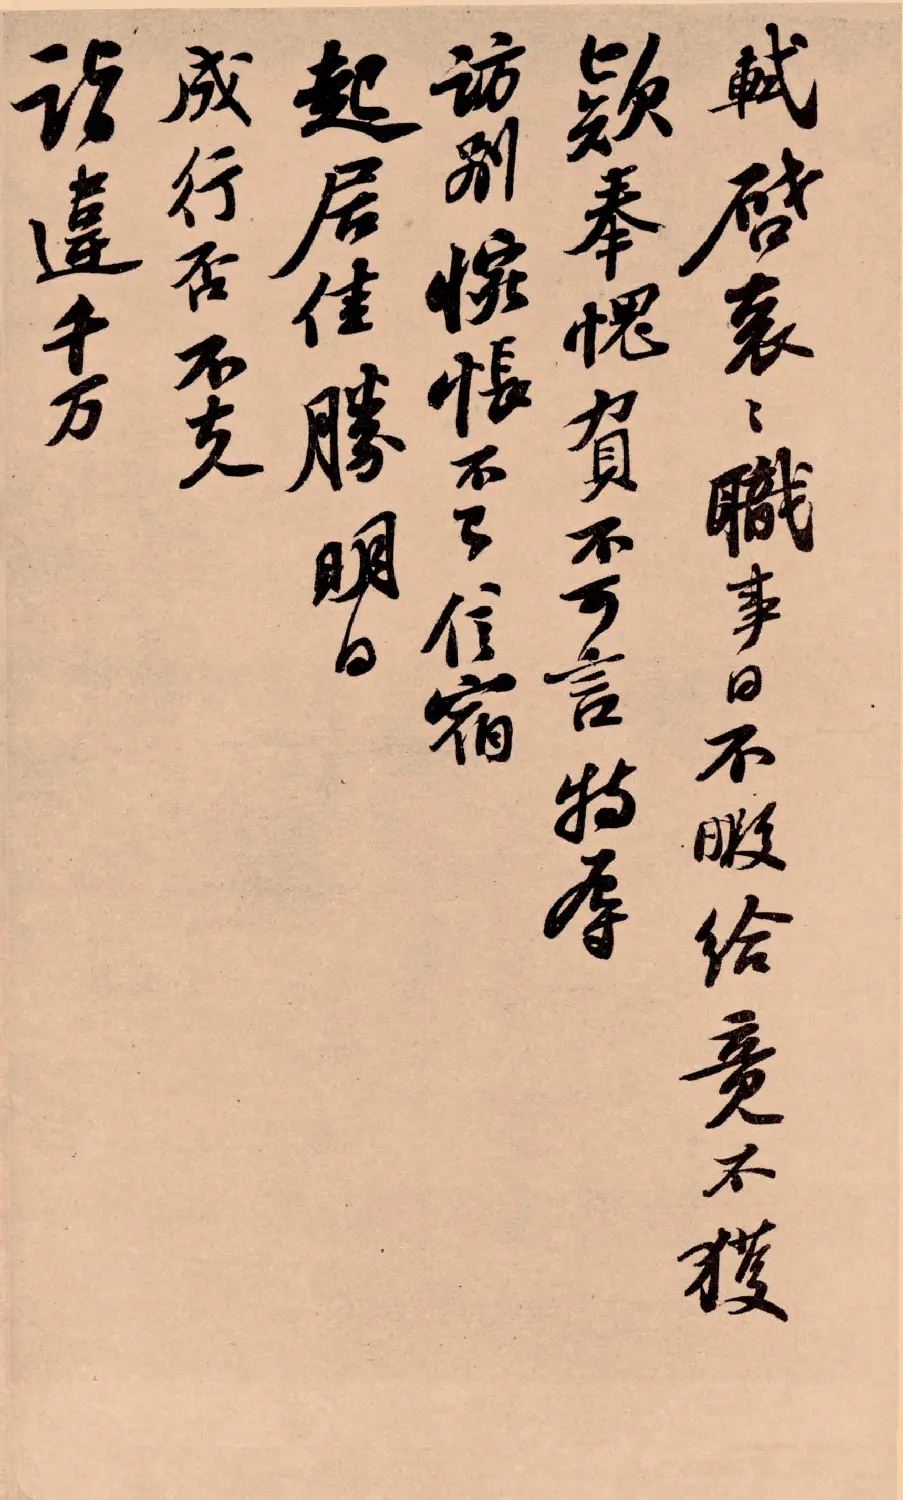 軾啓衰〻職事日不暇給竟不獲
款奉愧負不可言特辱
訪別惋悵不已信宿
起居佳勝明日
成行否不克
詣違千万